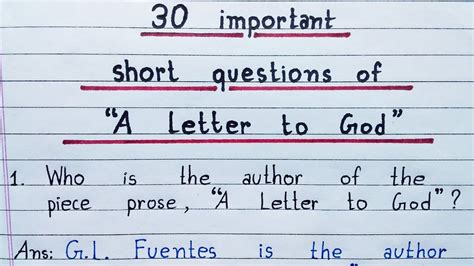 30 important
short questions of
"A Letter to God"
1. Who is the author of the
piece prose, "A Letter to God"?
Ans: G.L. Fuentes is the author